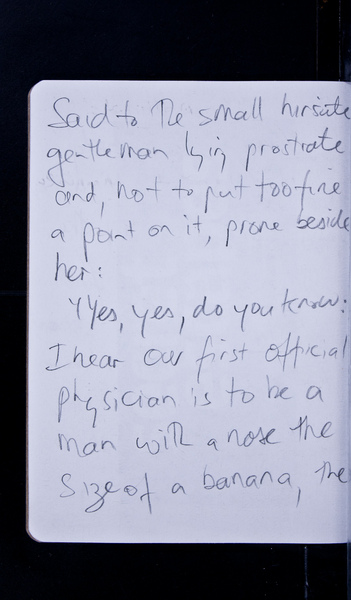 Said to the small hirsute
gentleman lying prostrate
and, not to put too fine
a point on it, prone beside
her:
"Yes, yes, do you know:
I hear our first official
physician is to be a
man with a nose the
size of a banana, the